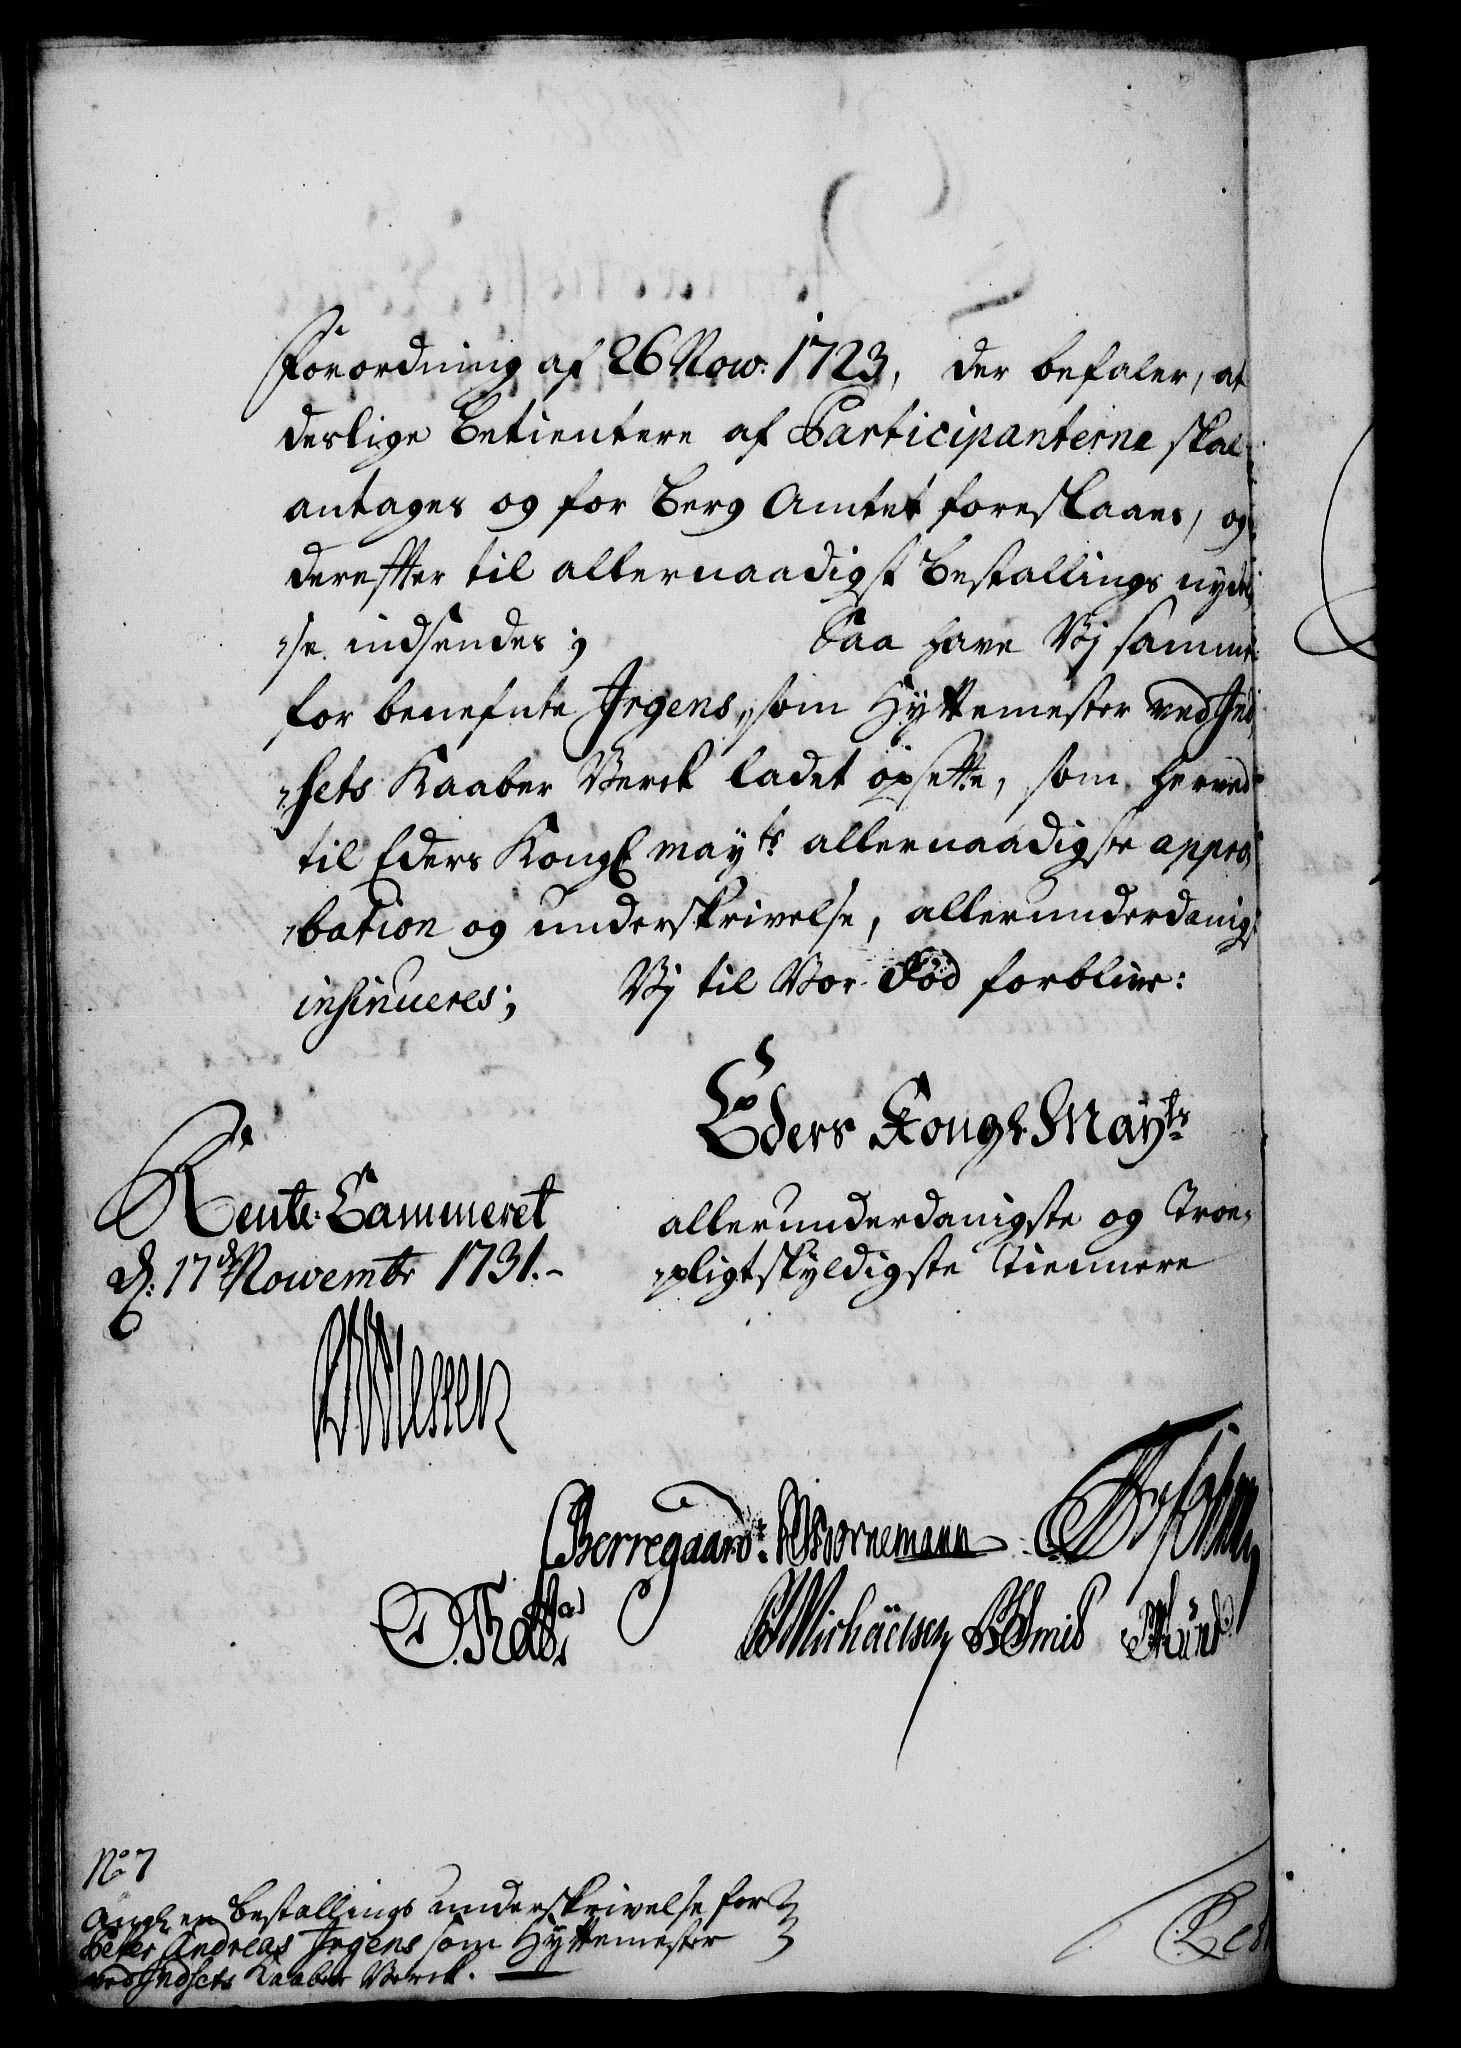 Forordning af 26 Now: 1723, der befaler, at
deslige Betientere af Participanterne skal
antages og for Berg Amtet foreslaaes, og
derefter til allernaadigst Bestallings nydel
se indsendes; Saa have Vj samme
for benefnte Irgens, som Hyttemester ved Ind
sets Kaaber Verck ladet opsette, som herved
til Eders Kongl mayts allernaadigste appro
bation og underskrivelse, allerunderdanigst
insinueres; Vj til Vor Död forblive:
Eders Kongl Mayts
Rente-Cammeret
d: 17de Nowembr 1731.
allerunderdanigste og Troe-
pligtskyldigste Tiennere
Berregaard: Bornemann
Michäelsen Smid Mund
No 7
Angl en Bestallings underskrivelse for
Peter Andreas Irgens som Hyttemester
ved Indsets Kaaber Verck.